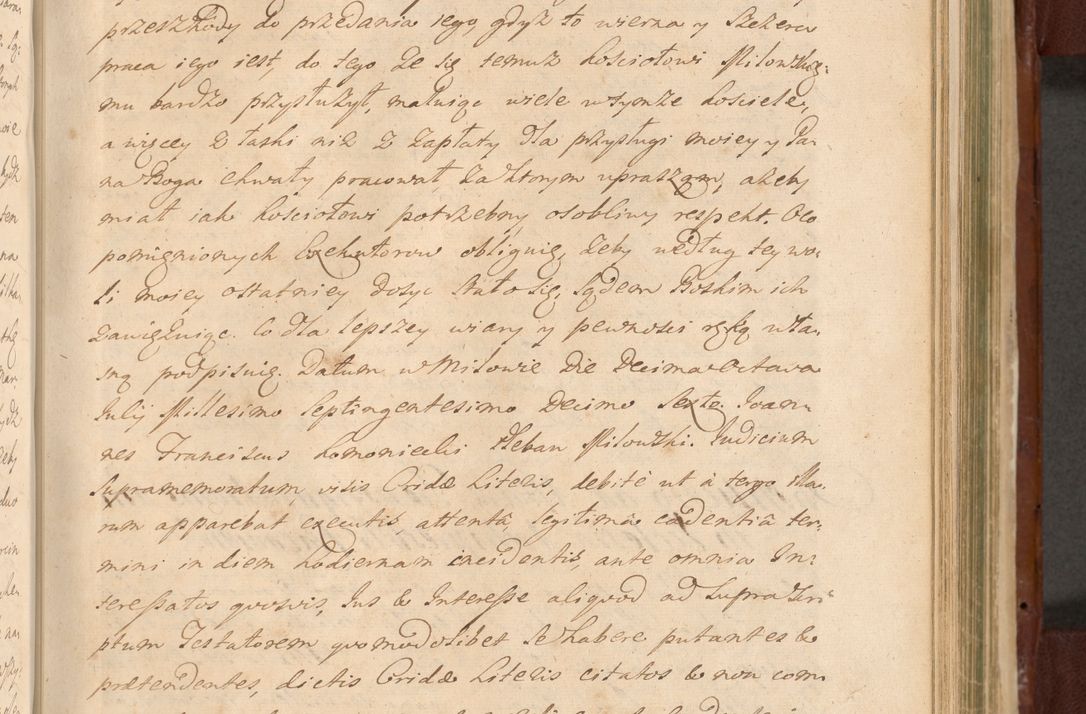 przeszkody do przedania iego, gdyż to wierna y szczera
praca iego iest, do tego że się temuż kosciołowi Milowskie-
mu bardzo przysłużył, maluiąc wiele w tymże kosciele,
a więcey z łaski niż z zapłaty dla przysługi moiey y Pa-
na Boga chwały pracował za ktorym upraszam, ażeby
miał iak kosciołowi potrzebny osobliwy respekt. Oto
pomięnionych Exekutorow obliguię, żeby według tey wo-
li moiey ostatniey dosyc stało się, sądem Boskim ich
zawięzuiąc. Co dla lepszey wiary y pewnosci ręką wła-
sną podpisuię. Datum w Milowie Die Decima Octava
Julij Millesimo Septingentesimo Decimo Sexto. Joan-
nes Franciscus Komoniecki Pleban Milowski. Judicium
Supramemoratum visis Cridæ Literis, debitè ut à tergo illa-
rum apparebat executis, attentâ, legitimâ cadentiâ ter-
mini in diem hodiernam incidentis, ante omnia In-
teressatos quosvis, Jus & Interesse aliquod ad Suprascri-
ptum Testatorem quomodolibet se habere putantes &
prætendentes, dictis Cridæ Literis citatos & non com-